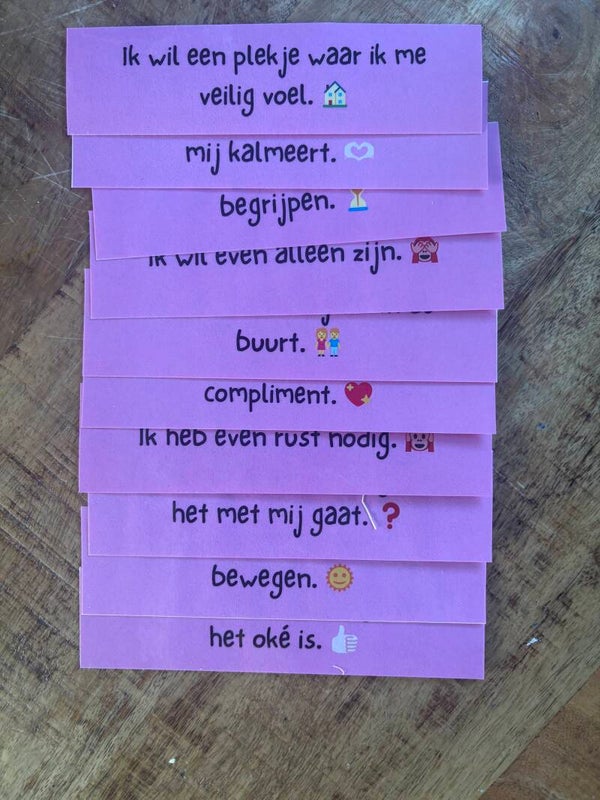 Ik wil een plekje waar ik me
veilig voel.
mij kalmeert.
begrijpen.
Ik wil even alleen zijn.
buurt.
compliment.
Ik heb even rust nodig.
het met mij gaat.
bewegen.
het oké is.